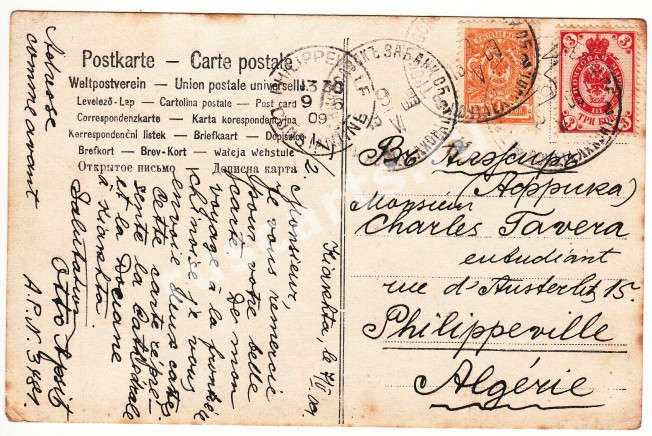 Postkarte — Carte postale
Weltpostverein — Union postale universelle
Levelező-Lap — Cartolina postale — Post card
Correspondenzkarte — Karta korespondencyjna
Korrespondenční listek — Briefkaart — Dopisnica
Brefkort — Brev-Kort — wałeja wehstule
Открытое письмо — Дописна карта
PHILIPPEVILLE
13 35
9 - 6
09
CONSTANTINE
3
ТРИ КОП
Въ Алжиръ
(Африка)
Monsieur
Charles Tavera
entudiant
rue d'Austerlitz 15.
Philippeville
Algérie
Kiarekta, le 7/V 09.
Monsieur,
Je vous remercie
pour votre belle
carte. De mon
voyage à la frontière
chinoise je vous
envoie deux cartes.
Cette carte repré-
sente la Cathédrale
et la Douane
à Kiarekta.
Salutation
Otto Apsit
A.P.N. 3481.
Adresse
comme avant